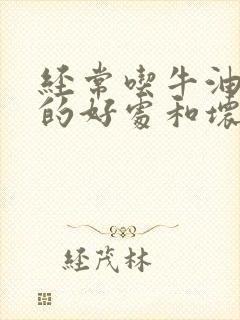 經常喫牛油
的好處和壞
經茂林